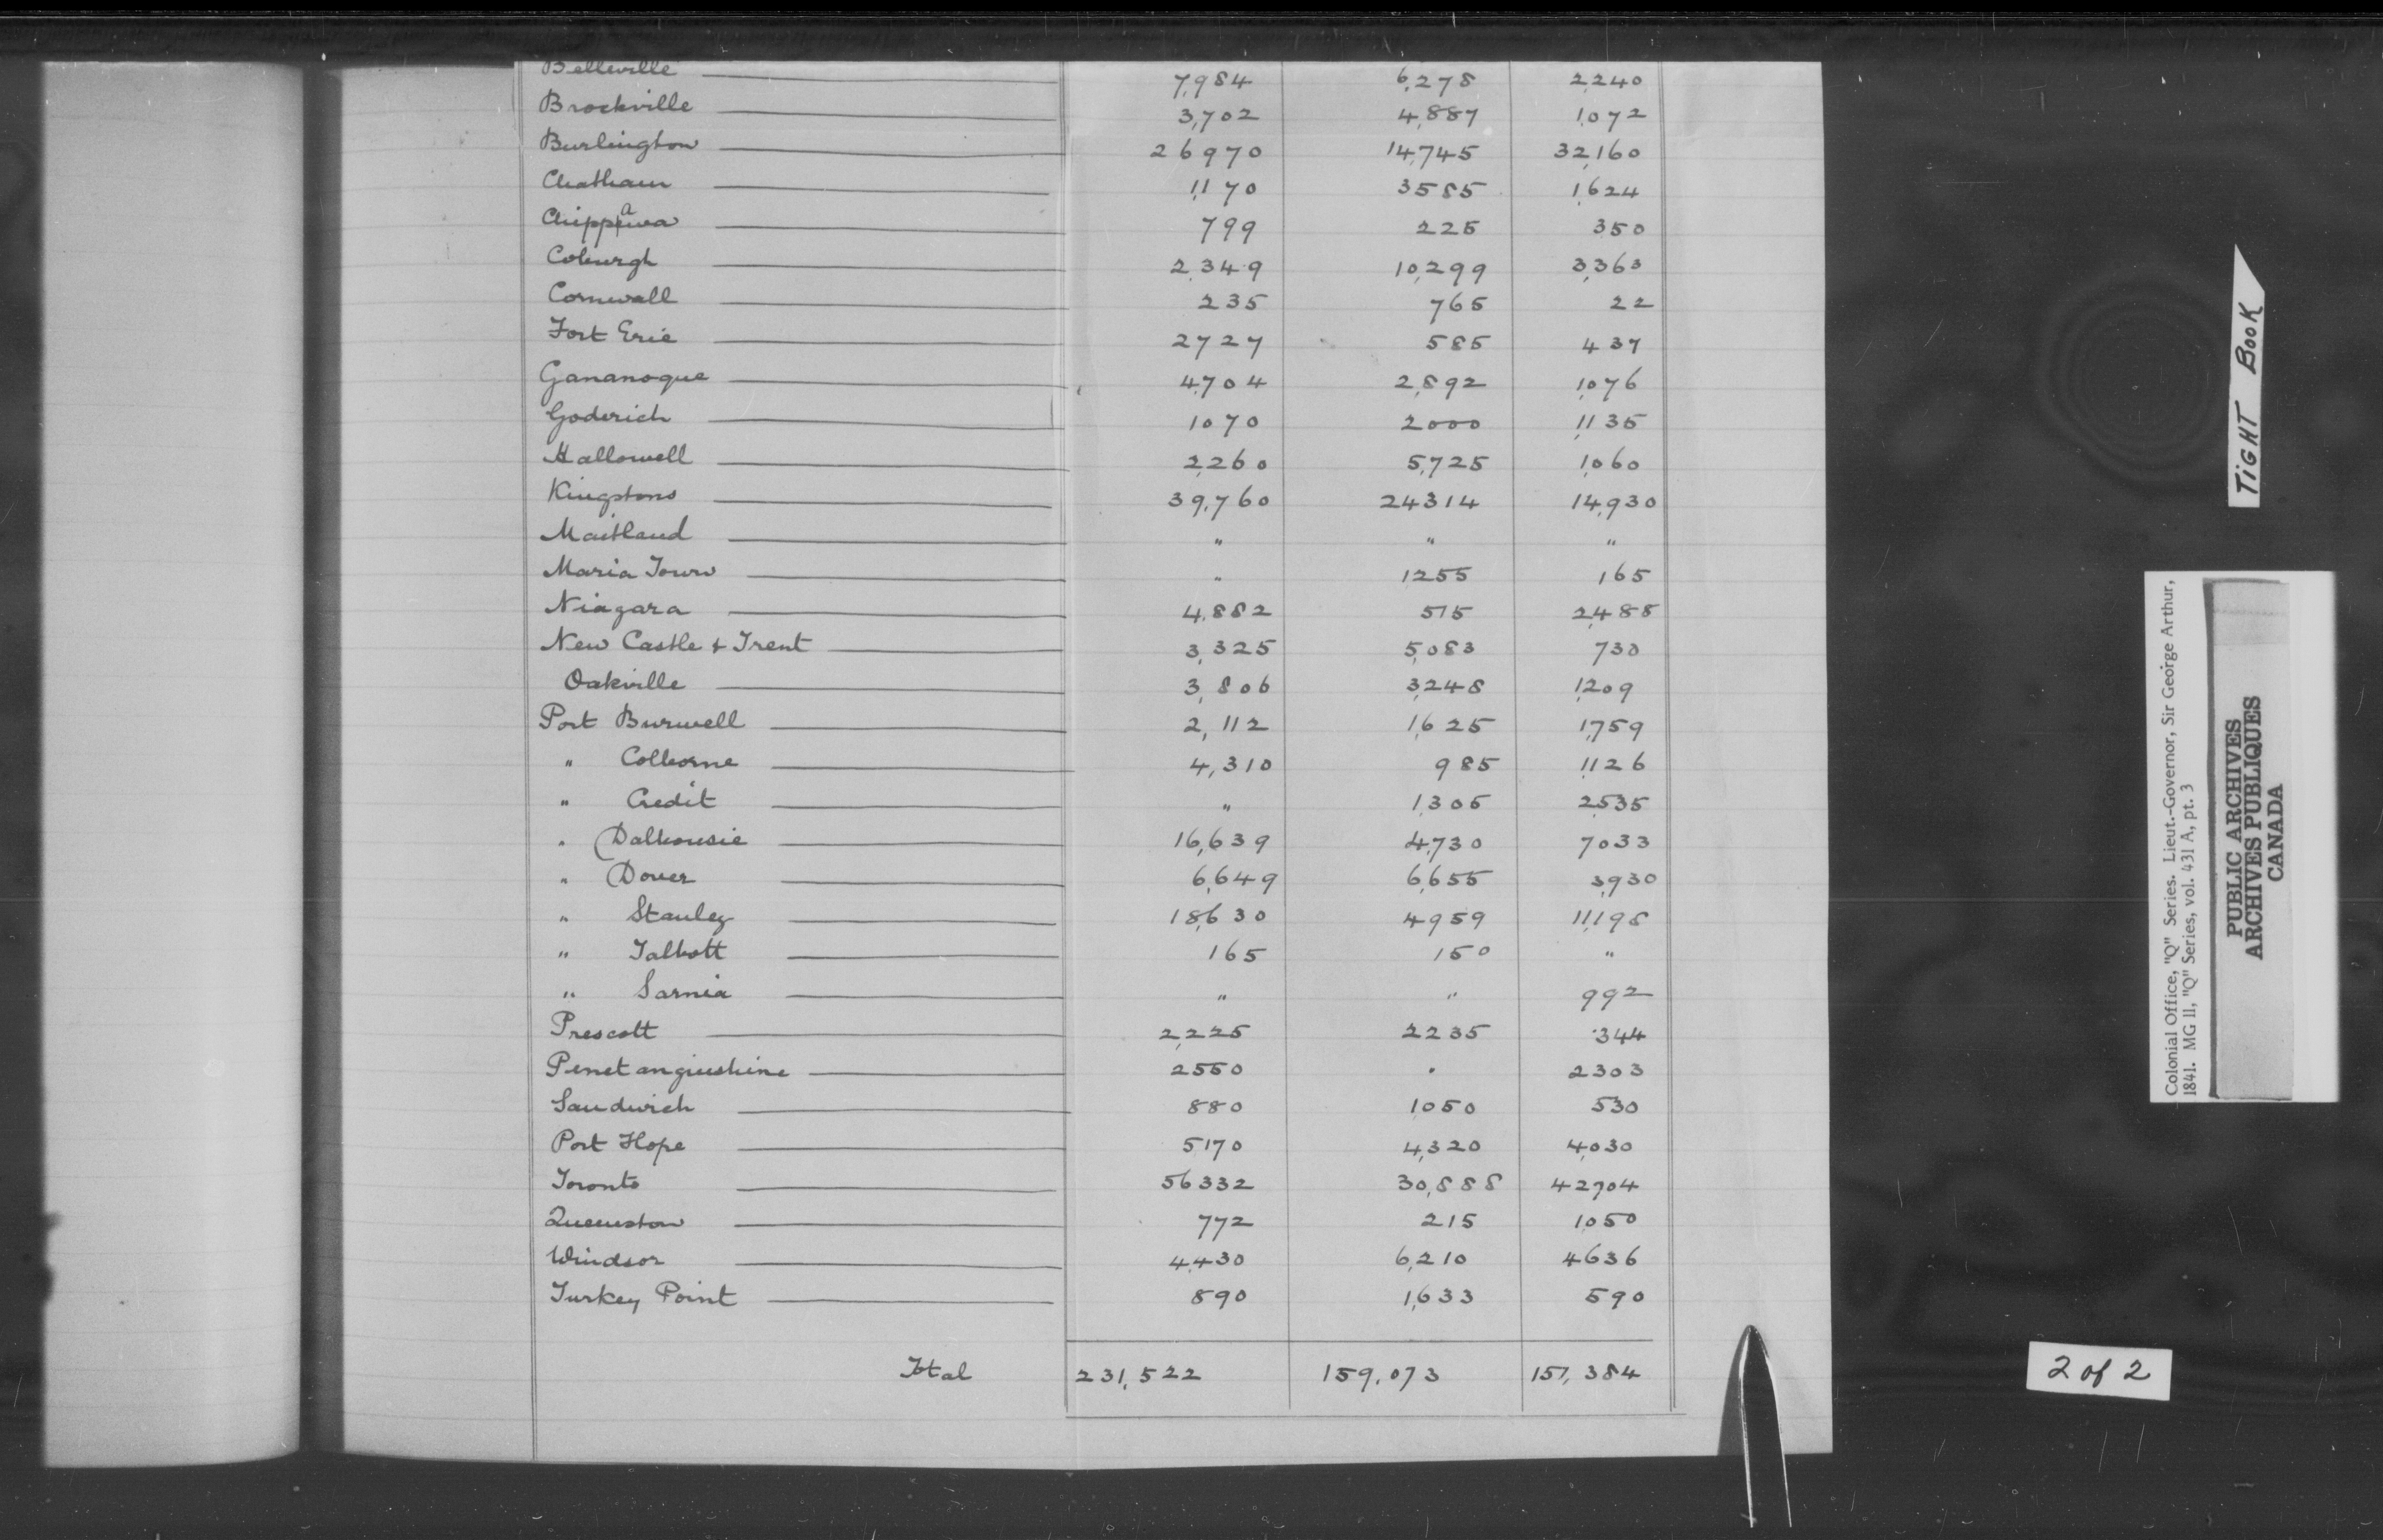 Belleville 7,984 6,278 2,240
Brockville 3,702 4,887 1,072
Burlington 26970 14,745 32,160
Chatham 1,170 3585 1,624
Chippawa 799 225 350
Coburgh 2,349 10,299 3,363
Cornwall 235 765 22
Fort Erie 2727 585 437
Gananoque 4,704 2,892 1,076
Goderich 1070 2000 1,135
Hallowell 2,260 5,725 1,060
Kingston 39,760 24314 14,930
Maitland " " "
Maria Town " 1255 165
Niagara 4,882 515 2,488
New Castle & Trent 3,325 5,083 730
Oakville 3,806 3,248 1,209
Port Burwell 2,112 1,625 1,759
" Colborne 4,310 985 1,126
" Credit " 1,305 2,535
" Dalhousie 16,639 4,730 7033
" Dover 6,649 6,655 3,930
" Stanley 18,630 4959 11,198
" Talbott 165 150 "
" Sarnia " " 992
Prescott 2,225 2235 344
Penetanguishine 2550 " 2303
Sandwich 880 1,050 530
Port Hope 5170 4,320 4,030
Toronto 56332 30,888 42704
Queenston 772 215 1,050
Windsor 4,430 6,210 4636
Turkey Point 890 1,633 590
Total 231,522 159,073 151,384
TIGHT BOOK
Colonial Office, "Q" Series. Lieut.-Governor, Sir George Arthur,
1841. MG 11, "Q" Series, vol. 431 A, pt. 3
PUBLIC ARCHIVES
ARCHIVES PUBLIQUES
CANADA
2 of 2